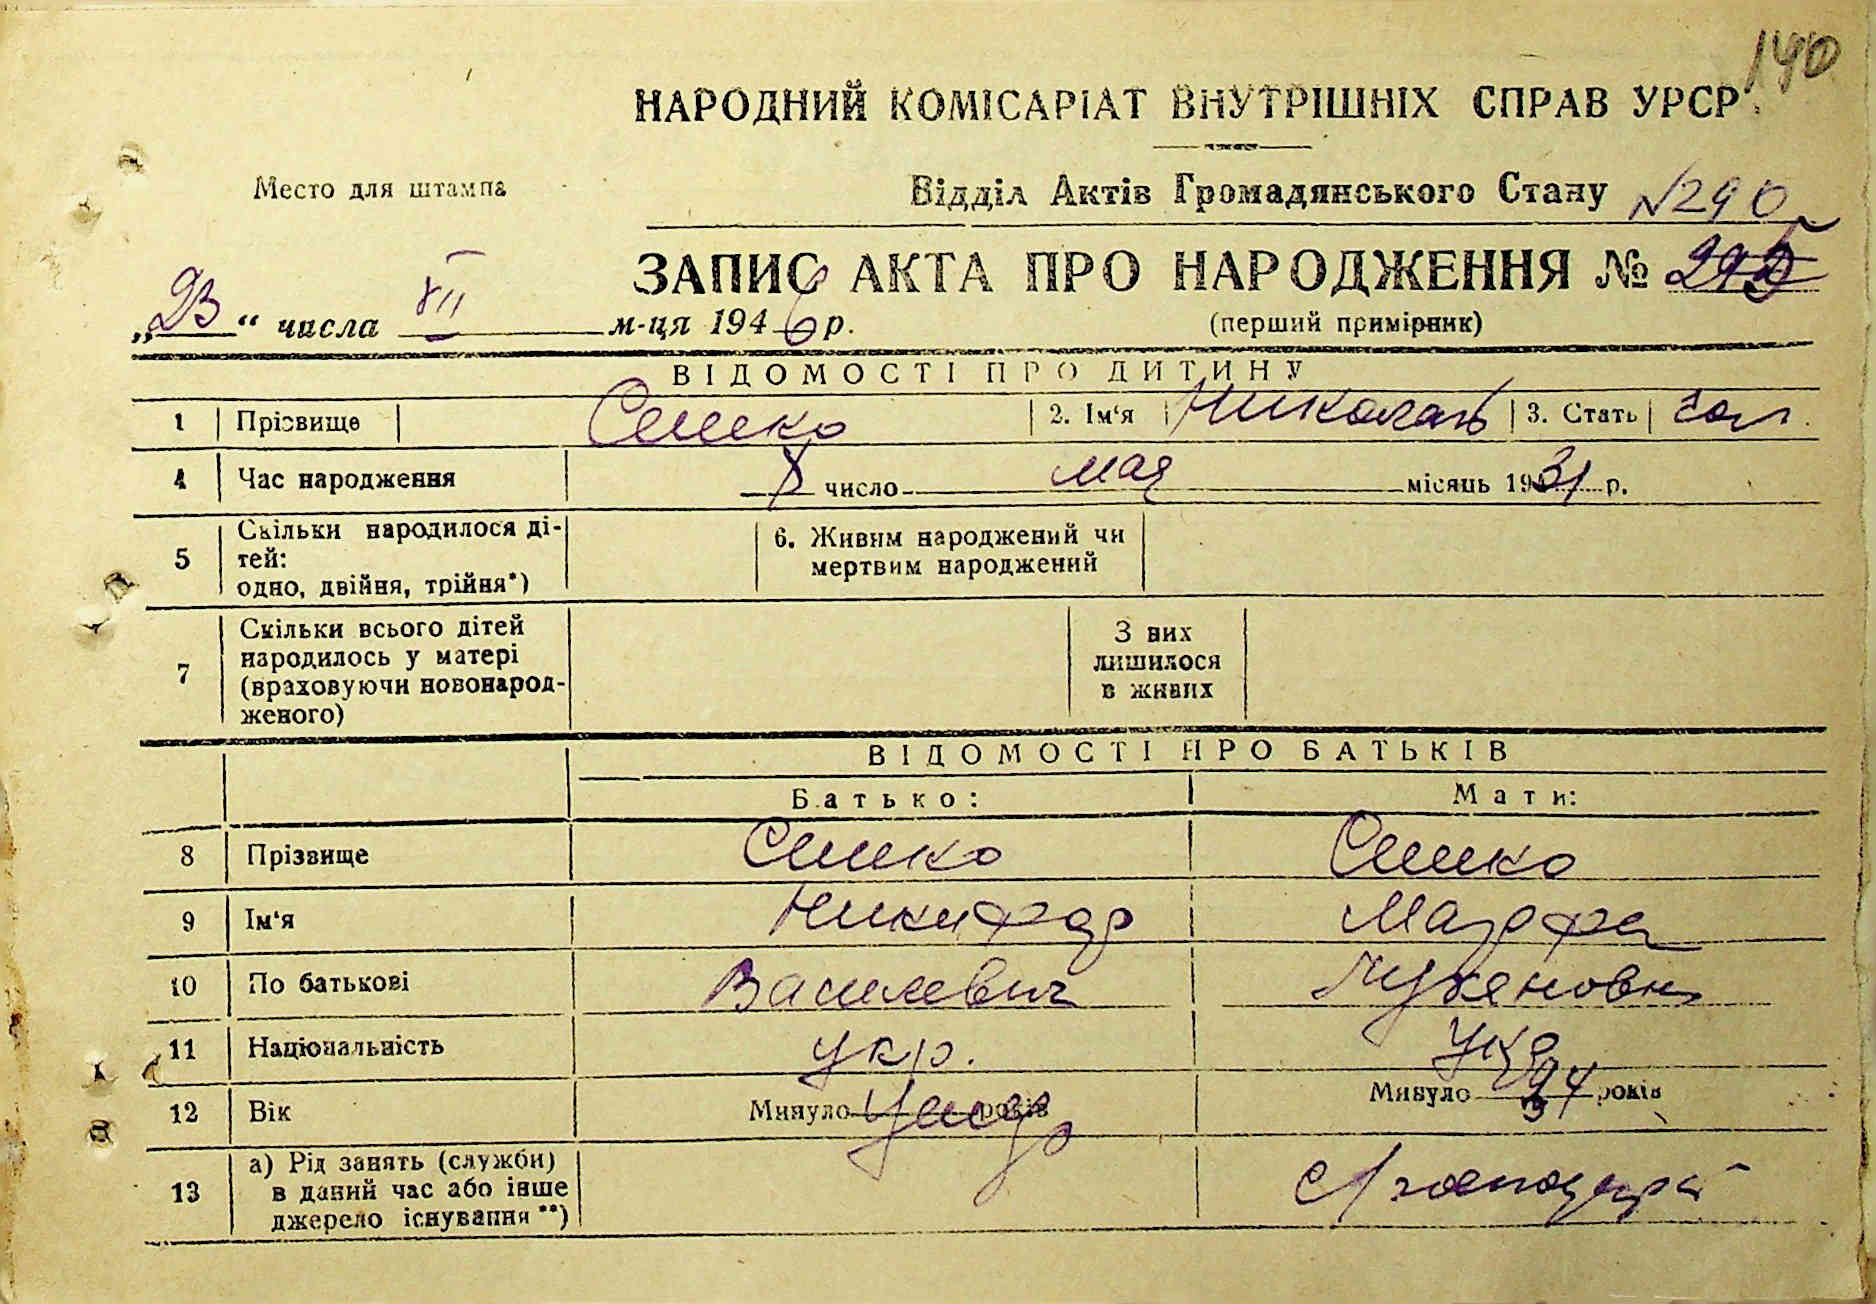 140
НАРОДНИЙ КОМІСАРІАТ ВНУТРІШНІХ СПРАВ УРСР
Место для штампа
Відділ Актів Громадянського Стану N290
ЗАПИС АКТА ПРО НАРОДЖЕННЯ №
„23“ числа VII м-ця 1946 р.
(перший примірник)
ВІДОМОСТІ ПРО ДИТИНУ
1 Прізвище Симко 2. Ім‘я Николай 3. Стать
4 Час народження 8 число мая місяць 1931 р.
5 Скільки народилося ді-
тей:
одно, двійня, трійня*)
6. Живим народжений чи
мертвим народжений
7 Скільки всього дітей
народилось у матері
(враховуючи новонарод-
женого)
З них
лишилося
в живих
ВІДОМОСТІ ПРО БАТЬКІВ
Батько: Мати:
8 Прізвище Симко Симко
9 Ім‘я Никифор Марфа
10 По батькові Василевич
11 Національність укр. укр
12 Вік Минуло років Минуло років
13 а) Рід занять (служби)
в даний час або інше
джерело існування**)